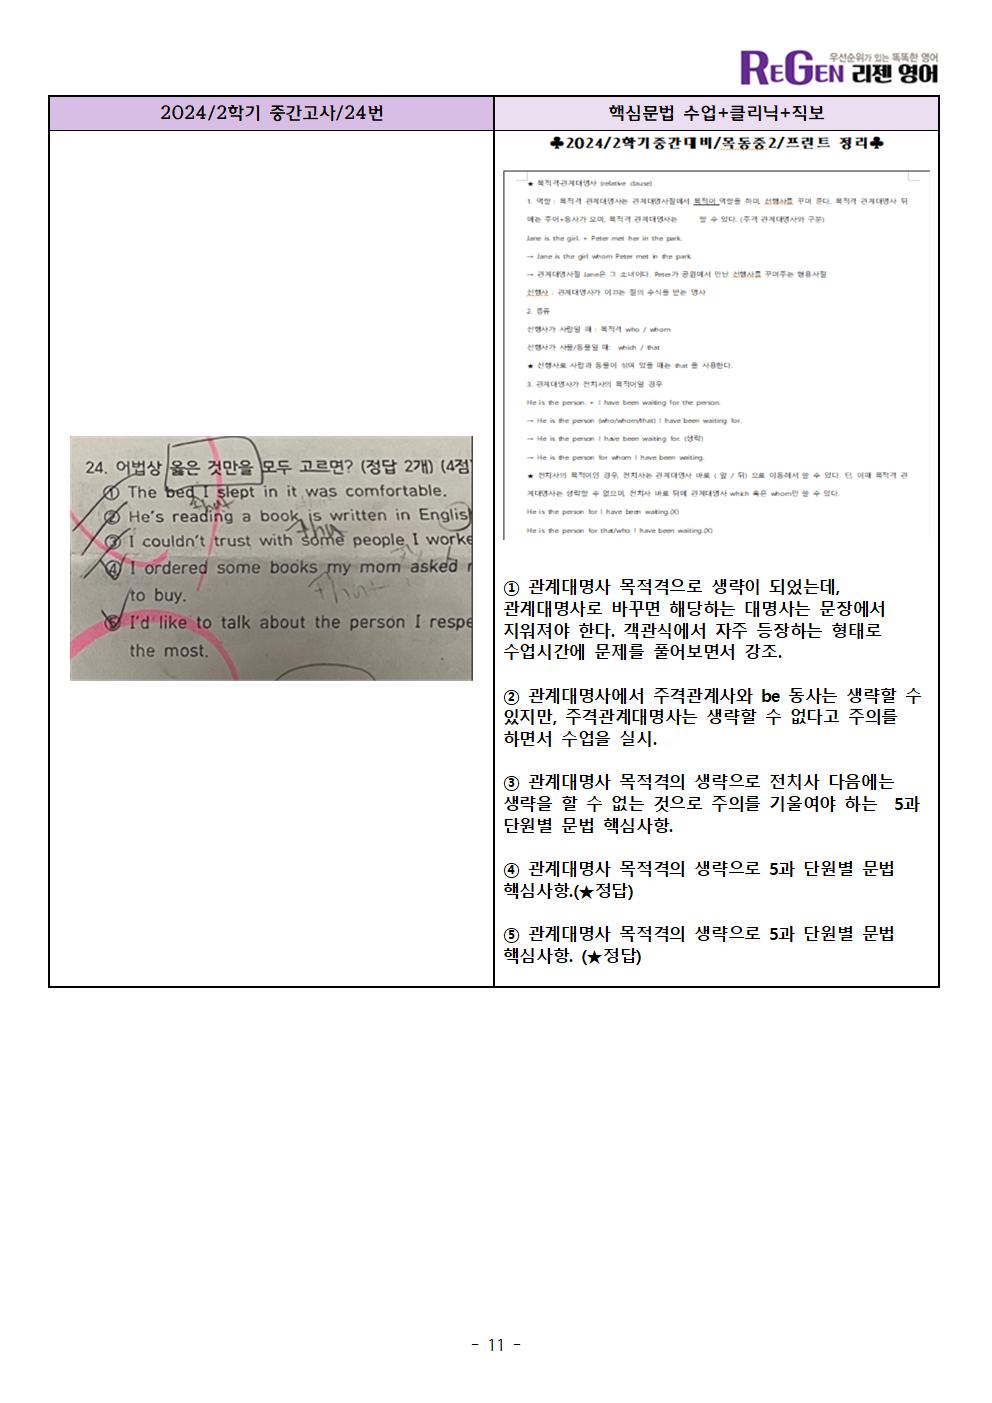 우선순위가 있는 똑똑한 영어
REGEN 리젠 영어
2024/2학기 중간고사/24번
핵심문법 수업+클리닉+직보
24. 어법상 옳은 것만을 모두 고르면? (정답 2개) (4점
① The bed I slept in it was comfortable.
② He's reading a book is written in Englis
③ I couldn't trust with some people I worke
④ I ordered some books my mom asked
to buy.
⑤ I'd like to talk about the person I respe
the most.
that
that
♣2024/2학기중간대비/목동중2/프린트 정리♣
★ 목적격관계대명사 (relative clause)
1. 역할 : 목적격 관계대명사는 관계대명사절에서 목적어 역할을 하며, 선행사를 꾸며 준다. 목적격 관계대명사 뒤
에는 주어+동사가 오며, 목적격 관계대명사는 할 수 있다. (주격 관계대명사와 구분)
Jane is the girl. + Peter met her in the park.
→ Jane is the girl whom Peter met in the park.
→ 관계대명사절 Jane은 그 소녀이다. Peter가 공원에서 만난 선행사를 꾸며주는 형용사절
선행사 : 관계대명사가 이끄는 절의 수식을 받는 명사
2. 종류
선행사가 사람일 때 : 목적격 who / whom
선행사가 사물/동물일 때: which / that
★ 선행사로 사람과 동물이 섞여 있을 때는 that 을 사용한다.
3. 관계대명사가 전치사의 목적어일 경우
He is the person. + I have been waiting for the person.
→ He is the person (who/whom/that) I have been waiting for.
→ He is the person I have been waiting for. (생략)
→ He is the person for whom I have been waiting.
★ 전치사의 목적어인 경우, 전치사는 관계대명사 바로 ( 앞 / 뒤) 으로 이동해서 쓸 수 있다. 단, 이때 목적격 관
계대명사는 생략할 수 없으며, 전치사 바로 뒤에 관계대명사 which 혹은 whom만 쓸 수 있다.
He is the person for I have been waiting.(X)
He is the person for that/who I have been waiting.(X)
① 관계대명사 목적격으로 생략이 되었는데,
관계대명사로 바꾸면 해당하는 대명사는 문장에서
지워져야 한다. 객관식에서 자주 등장하는 형태로
수업시간에 문제를 풀어보면서 강조.
② 관계대명사에서 주격관계사와 be 동사는 생략할 수
있지만, 주격관계대명사는 생략할 수 없다고 주의를
하면서 수업을 실시.
③ 관계대명사 목적격의 생략으로 전치사 다음에는
생략을 할 수 없는 것으로 주의를 기울여야 하는 5과
단원별 문법 핵심사항.
④ 관계대명사 목적격의 생략으로 5과 단원별 문법
핵심사항.(★정답)
⑤ 관계대명사 목적격의 생략으로 5과 단원별 문법
핵심사항. (★정답)
- 11 -